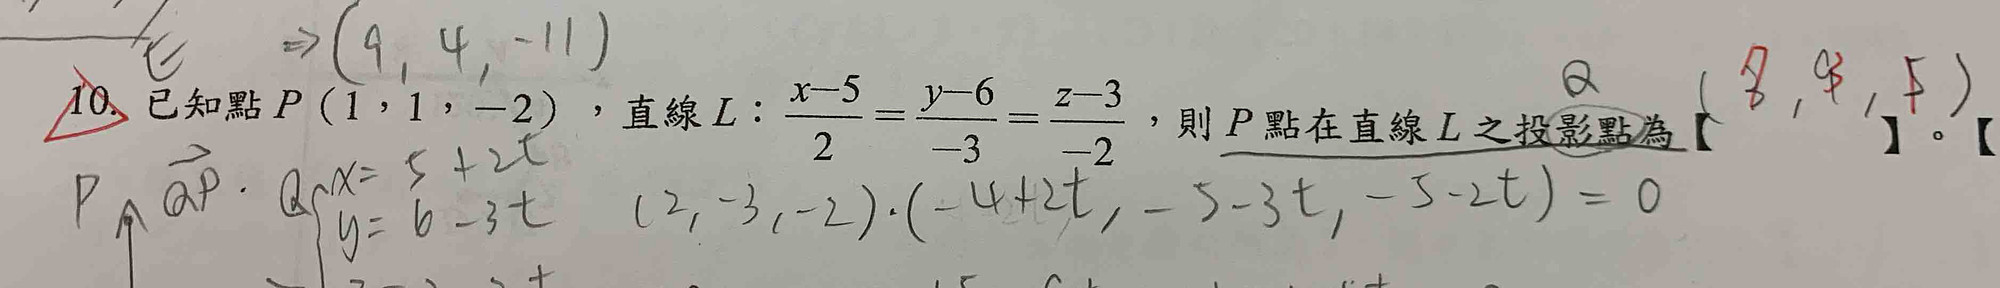 ⇒ (9, 4, -11)
10. 已知點 P（1，1，−2），直線 L：\frac{x−5}{2} = \frac{y−6}{−3} = \frac{z−3}{−2}，則 P 點在直線 L 之投影點為【 】。【
Q
P QP · Q { x = 5 + 2t
y = 6 - 3t
(2, -3, -2)·(-4+2t, -5-3t, -5-2t) = 0